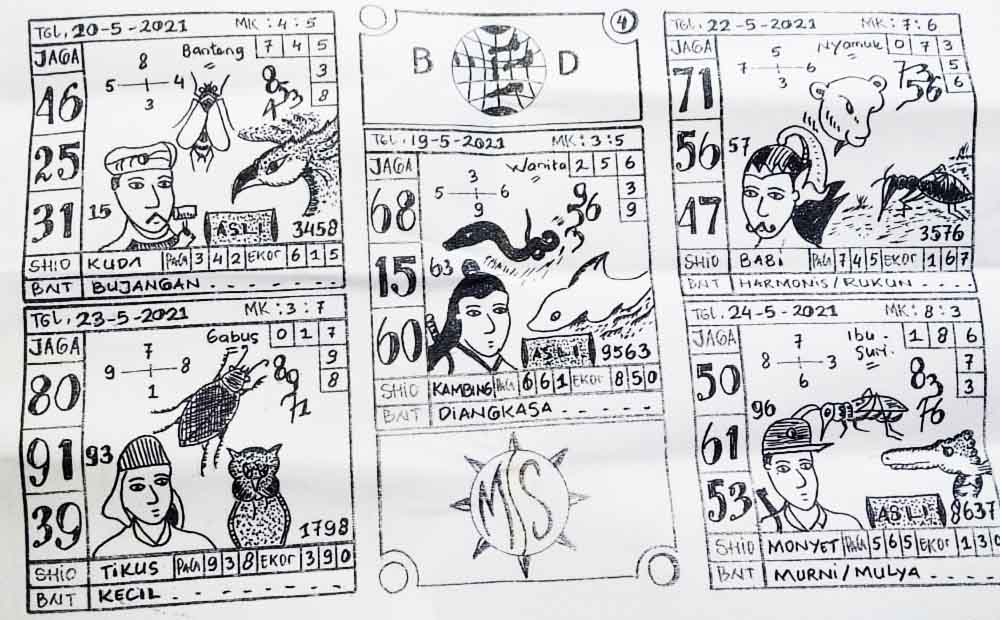 TGL, 20-5-2021 MK: 4:5
JAGA
46
25
31
8
5 4
3
Banteng
7 4 5
3
8
8
4 5 3
15
ASLI
3458
SHIO KUDA PAGI 3 4 2 EKOR 6 1 5
BNT BUJANGAN - - - - - -
TGL, 23-5-2021 MK: 3:7
JAGA
80
91
39
7
9 8
1
Gabus
0 1 7
9
8
89
71
93
1798
SHIO TIKUS PAGI 9 3 8 EKOR 3 9 0
BNT KECIL - - - - - -
4
B D
TGL, 19-5-2021 MK: 3:5
JAGA
68
15
60
3
5 6
9
Wanita
2 5 6
3
9
96
5
3
63
ASLI
9563
SHIO KAMBING PAGI 6 6 1 EKOR 8 5 0
BNT DIANGKASA - - - - -
MS
TGL, 22-5-2021 MK: 7:6
JAGA
71
56
47
5
7 6
3
Nyamuk
0 7 3
5
6
73
56
57
3576
SHIO BABI PAGI 7 4 5 EKOR 1 6 7
BNT HARMONIS/RUKUN - - - -
TGL, 24-5-2021 MK: 8:3
JAGA
50
61
53
7
8 3
6
Ibu.
Suri.
1 8 6
7
3
83
76
96
ASLI
8637
SHIO MONYET PAGI 5 6 5 EKOR 1 3 0
BNT MURNI/MULYA - - - - -